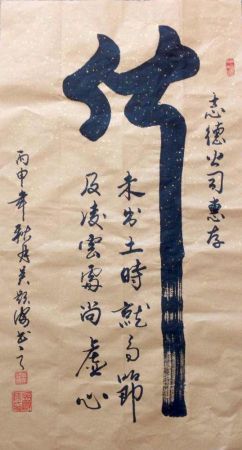 志德公司惠存
竹
未出土時就有節
及凌雲處尚虛心
丙申年秋月